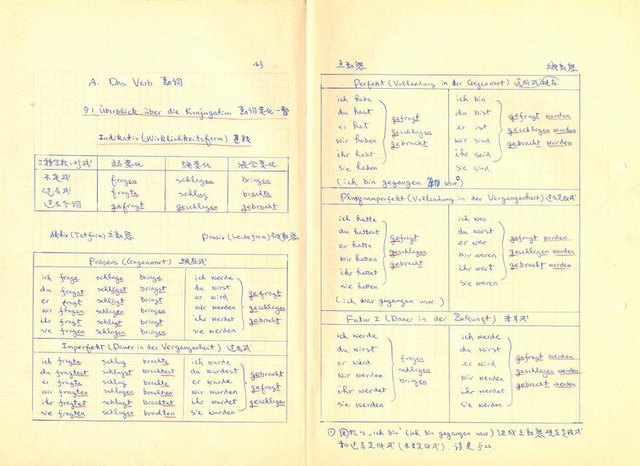 43
A. Das Verb 动词
§1. Überblick über die Konjugation 动词变化一览
Indikativ (Wirklichkeitsform) 直陈
三种字根形式 弱变化 强变化 混合变化
不定式 fragen schlagen bringen
过去式 fragte schlug brachte
过去分词 gefragt geschlagen gebracht
Aktiv (Tatform) 主动态 Passiv (Leideform) 被动态
Präsens (Gegenwart) 现在式
ich frage schlage bringe ich werde
du fragst schlägst bringst du wirst
er fragt schlägt bringt er wird gefragt
wir fragen schlagen bringen wir werden geschlagen
ihr fragt schlagt bringt ihr werdet gebracht
sie fragen schlagen bringen sie werden
Imperfekt (Dauer in der Vergangenheit) 过去式
ich fragte schlug brachte ich wurde
du fragtest schlugst brachtest du wurdest gebracht
er fragte schlug brachte er wurde gefragt
wir fragten schlugen brachten wir wurden geschlagen
ihr fragtet schlugt brachtet ihr wurdet
sie fragten schlugen brachten sie wurden
主动态 被动态
Perfekt (Vollendung in der Gegenwart)
ich habe ich bin
du hast gefragt du bist gefragt worden
er hat geschlagen er ist geschlagen worden
wir haben gebracht wir sind gebracht worden
ihr habt ihr seid
sie haben sie sind
(ich bin gegangen usw.)
Plusquamperfekt (Vollendung in der Vergangenheit) 过去完成式
ich hatte ich war
du hattest du warst
er hatte gefragt er war gefragt worden
wir hatten geschlagen wir waren geschlagen worden
ihr hattet gebracht ihr wart gebracht worden
sie hatten sie waren
(ich war gegangen usw.)
Futur I (Dauer in der Zukunft) 未来式
ich werde ich werde
du wirst du wirst
er wird fragen er wird gefragt werden
wir werden schlagen wir werden geschlagen werden
ihr werdet bringen ihr werdet gebracht werden
sie werden sie werden
① „ich bin" (ich bin gegangen usw)
和过去完成式 请见 §22.